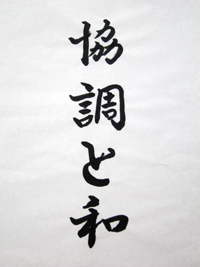 協調と和